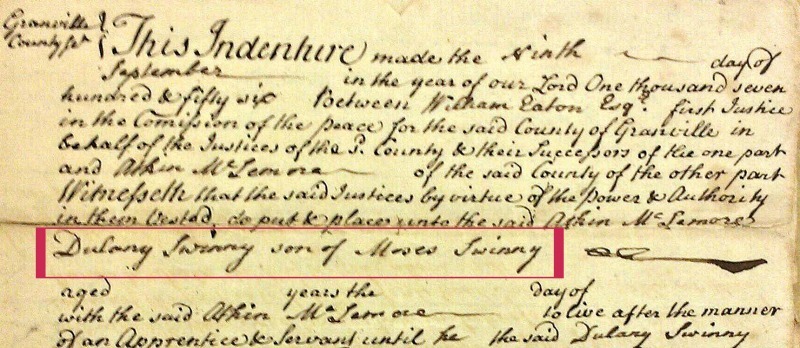 Granville
County Sct
This Indenture made the Ninth day of
September in the year of our Lord One thousand seven
hundred & fifty six Between William Eaton Esqr. first Justice
in the Comission of the peace for the said County of Granville in
behalf of the Justices of the sd. County & their Successors of the one part
and Atkin McLemore of the said County of the other part
Witnesseth that the said Justices by virtue of the Power & Authority
in them Vested, do put & place unto the said Atkin McLemore
Dulany Swinny son of Moses Swinny
aged years the day of
with the said Atkin McLemore to live after the manner
of an Apprentice & Servant until he the said Dulany Swinny